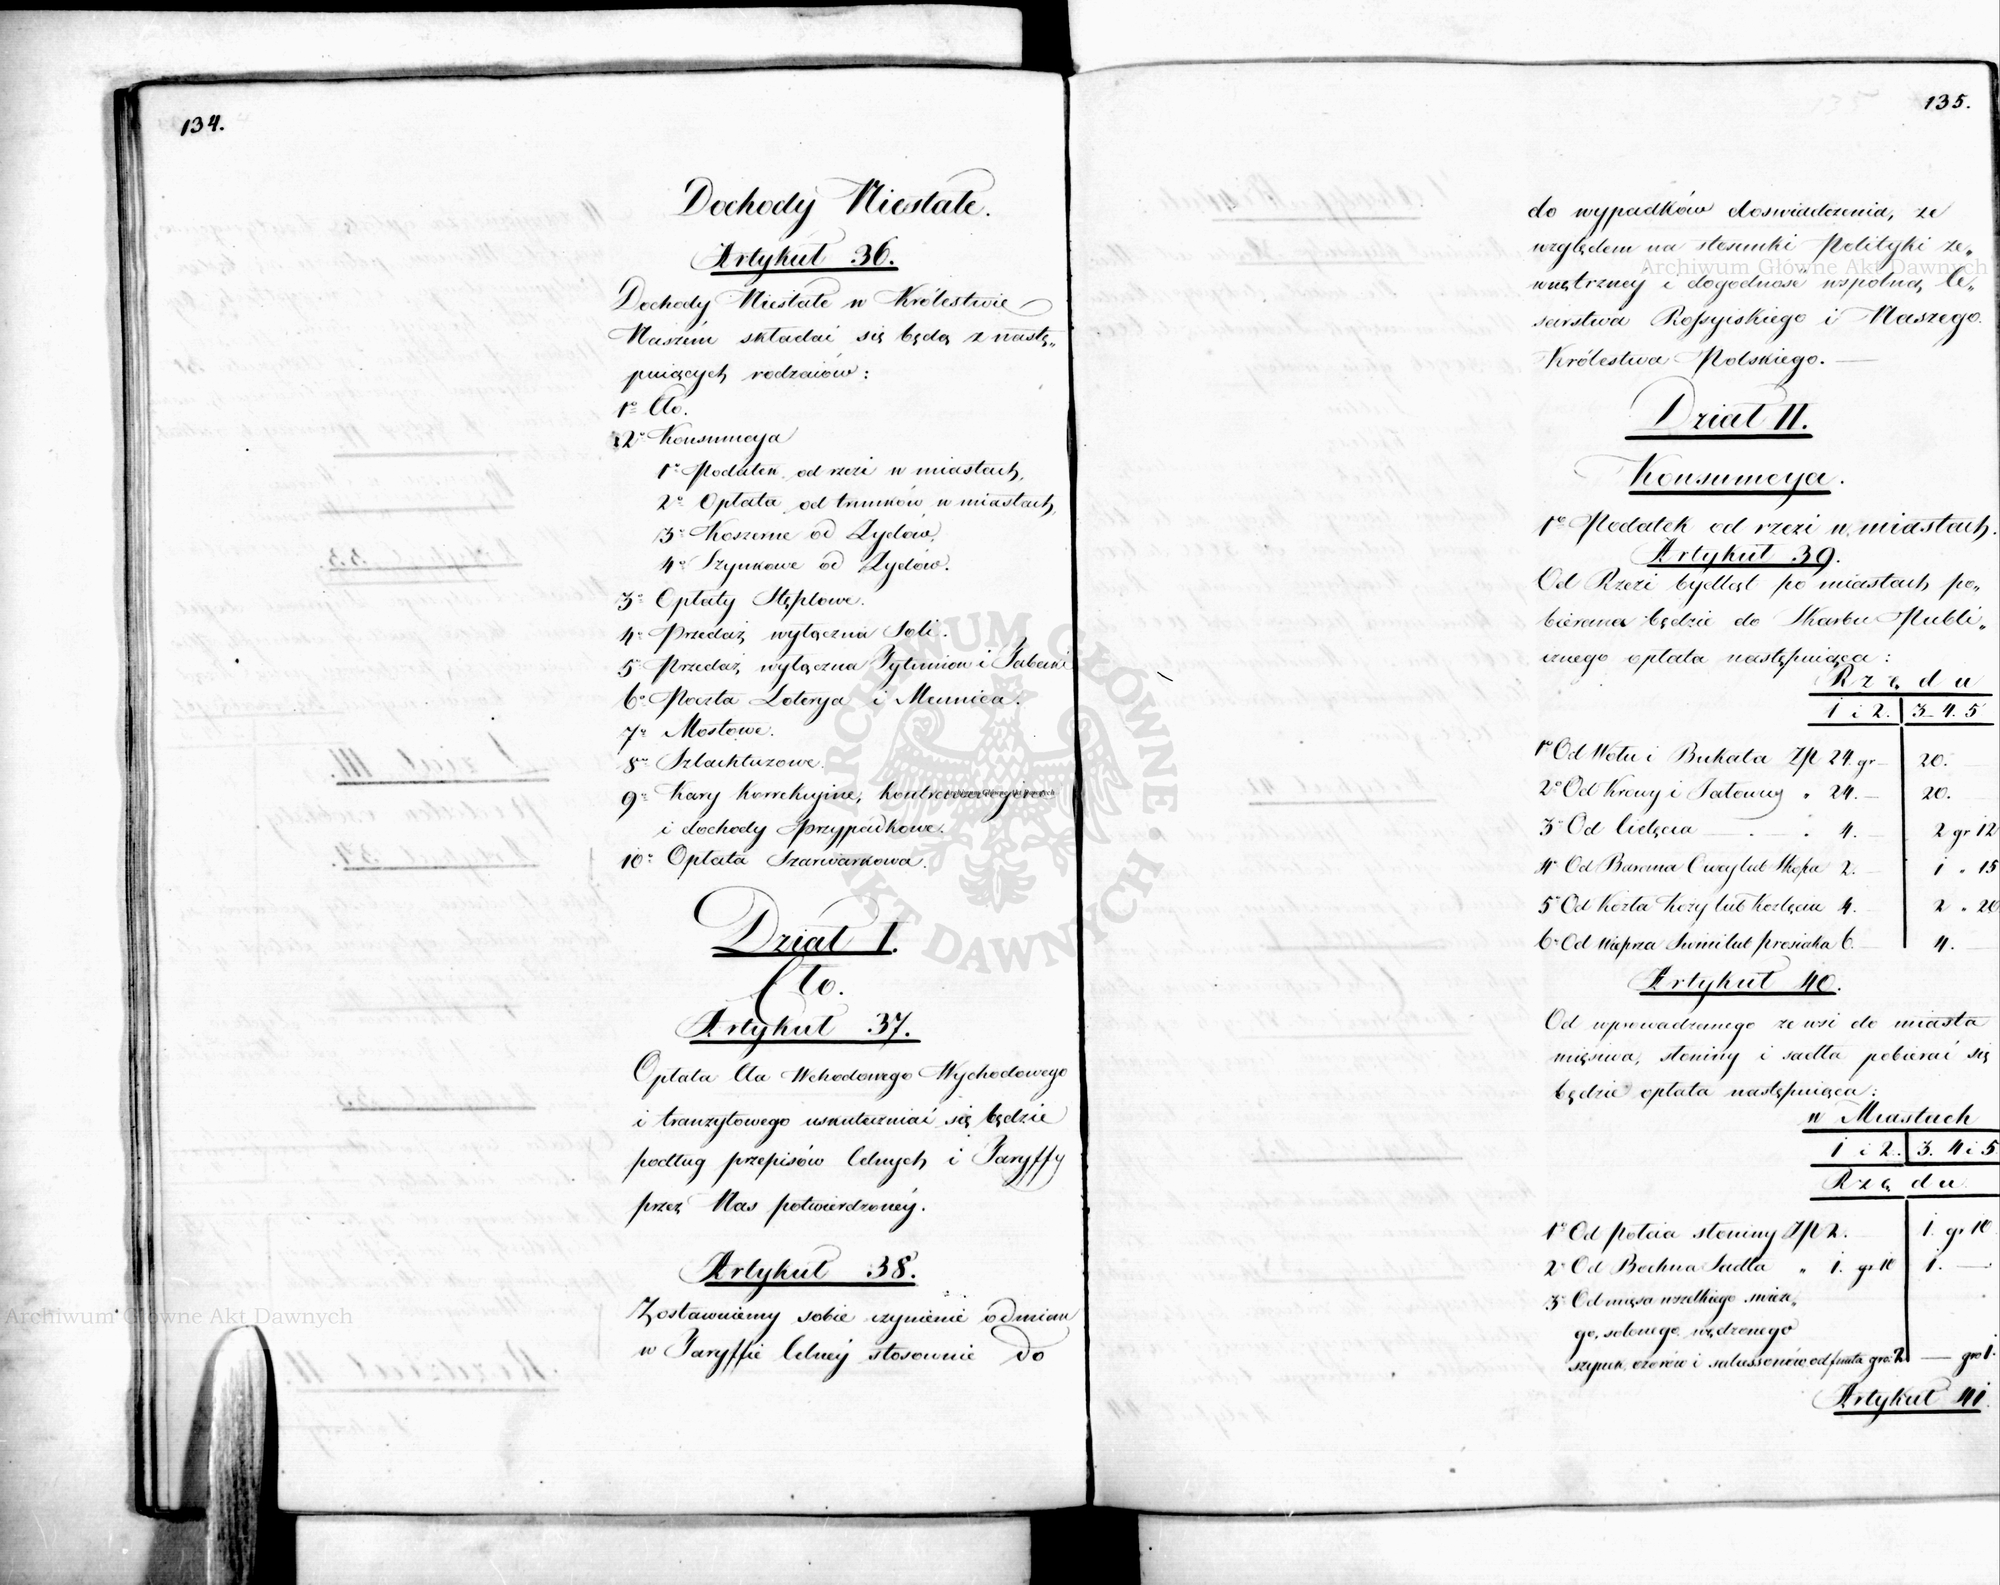 134.
Dochody Niestałe.
Artykuł 36.
Dochody Niestałe w Królestwie
Naszém składać się będą z nastę„
puiących rodzaiów:
1o Cło.
2o Konsumcya
1o Podatek od rzezi w miastach,
2o Opłata od trunków w miastach,
3o Koszerne od Żydów,
4o Szynkowe od Żydów.
3o Opłaty Stęplowe.
4o Przedaż wyłączna Soli.
5o Przedaż wyłączna Tytuniow i Tabaki
6o Poczta Loterya i Mennica.
7o Mostowe.
8o Szlachtuzowe.
9o Kary korrekcyjne, kontrawencyine
i dochody przypadkowe.
10o Opłata Szarwarkowa.
Dział I.
Cło.
Artykuł 37.
Opłata Cła Wchodowego Wychodowego
i tranzytowego uskuteczniać się będzie
podług przepisów Celnych i Taryffy
przez Nas potwierdzonéy.
Artykuł 38.
Zostawuiemy sobie czynienie odmian
w Taryffie Celnéy stosownie do
135.
do wypadków doswiadczenia, ze
względem na stosunki Polityki ze„
wnętrzney i dogodność wspolną Ce„
sarstwa Rossyiskiego i Naszego
Królestwa Polskiego. —
Dział II.
Konsumcya.
1o Podatek od rzezi w miastach.
Artykuł 39.
Od Rzezi bydląt po miastach po„
bierana będzie do Skarbu Publi„
cznego opłata następuiąca:
Rzędu
1 i 2. 3. 4. 5
1o Od Wołu i Buhaia Zp 24. gr — 20. —
2o Od Krowy i Jałowicy „ 24. — 20. —
3o Od Cielęcia — . — . 4. — 2 gr 12
4o Od Barana Owcy lub Skopa 2. — 1 „ 15
5o Od Kozła Kozy lub Koźlęcia 4. — 2 „ 20
6o Od Wieprza Swini lub prosiaka 6. — 4. —
Artykuł 40.
Od wprowadzanego ze wsi do miasta
mięsiwa, słoniny i sadła pobierać się
będzie opłata następuiąca:
w Miastach
1 i 2. 3. 4 i 5
Rzędu
1o Od połcia słoniny Zp 2. — 1. gr 10
2o Od Bochna Sadła „ 1. gr 10 1. —
3o Od mięsa wszelkiego świeże„
go, solonego, wędzonego
szynek, ozorów i salcessonów od funta gro: 2. — gro 1.
Artykuł 41.
ARCHIWUM GŁÓWNE AKT DAWNYCH
Archiwum Główne Akt Dawnych
Archiwum Główne Akt Dawnych
Archiwum Główne Akt Dawnych